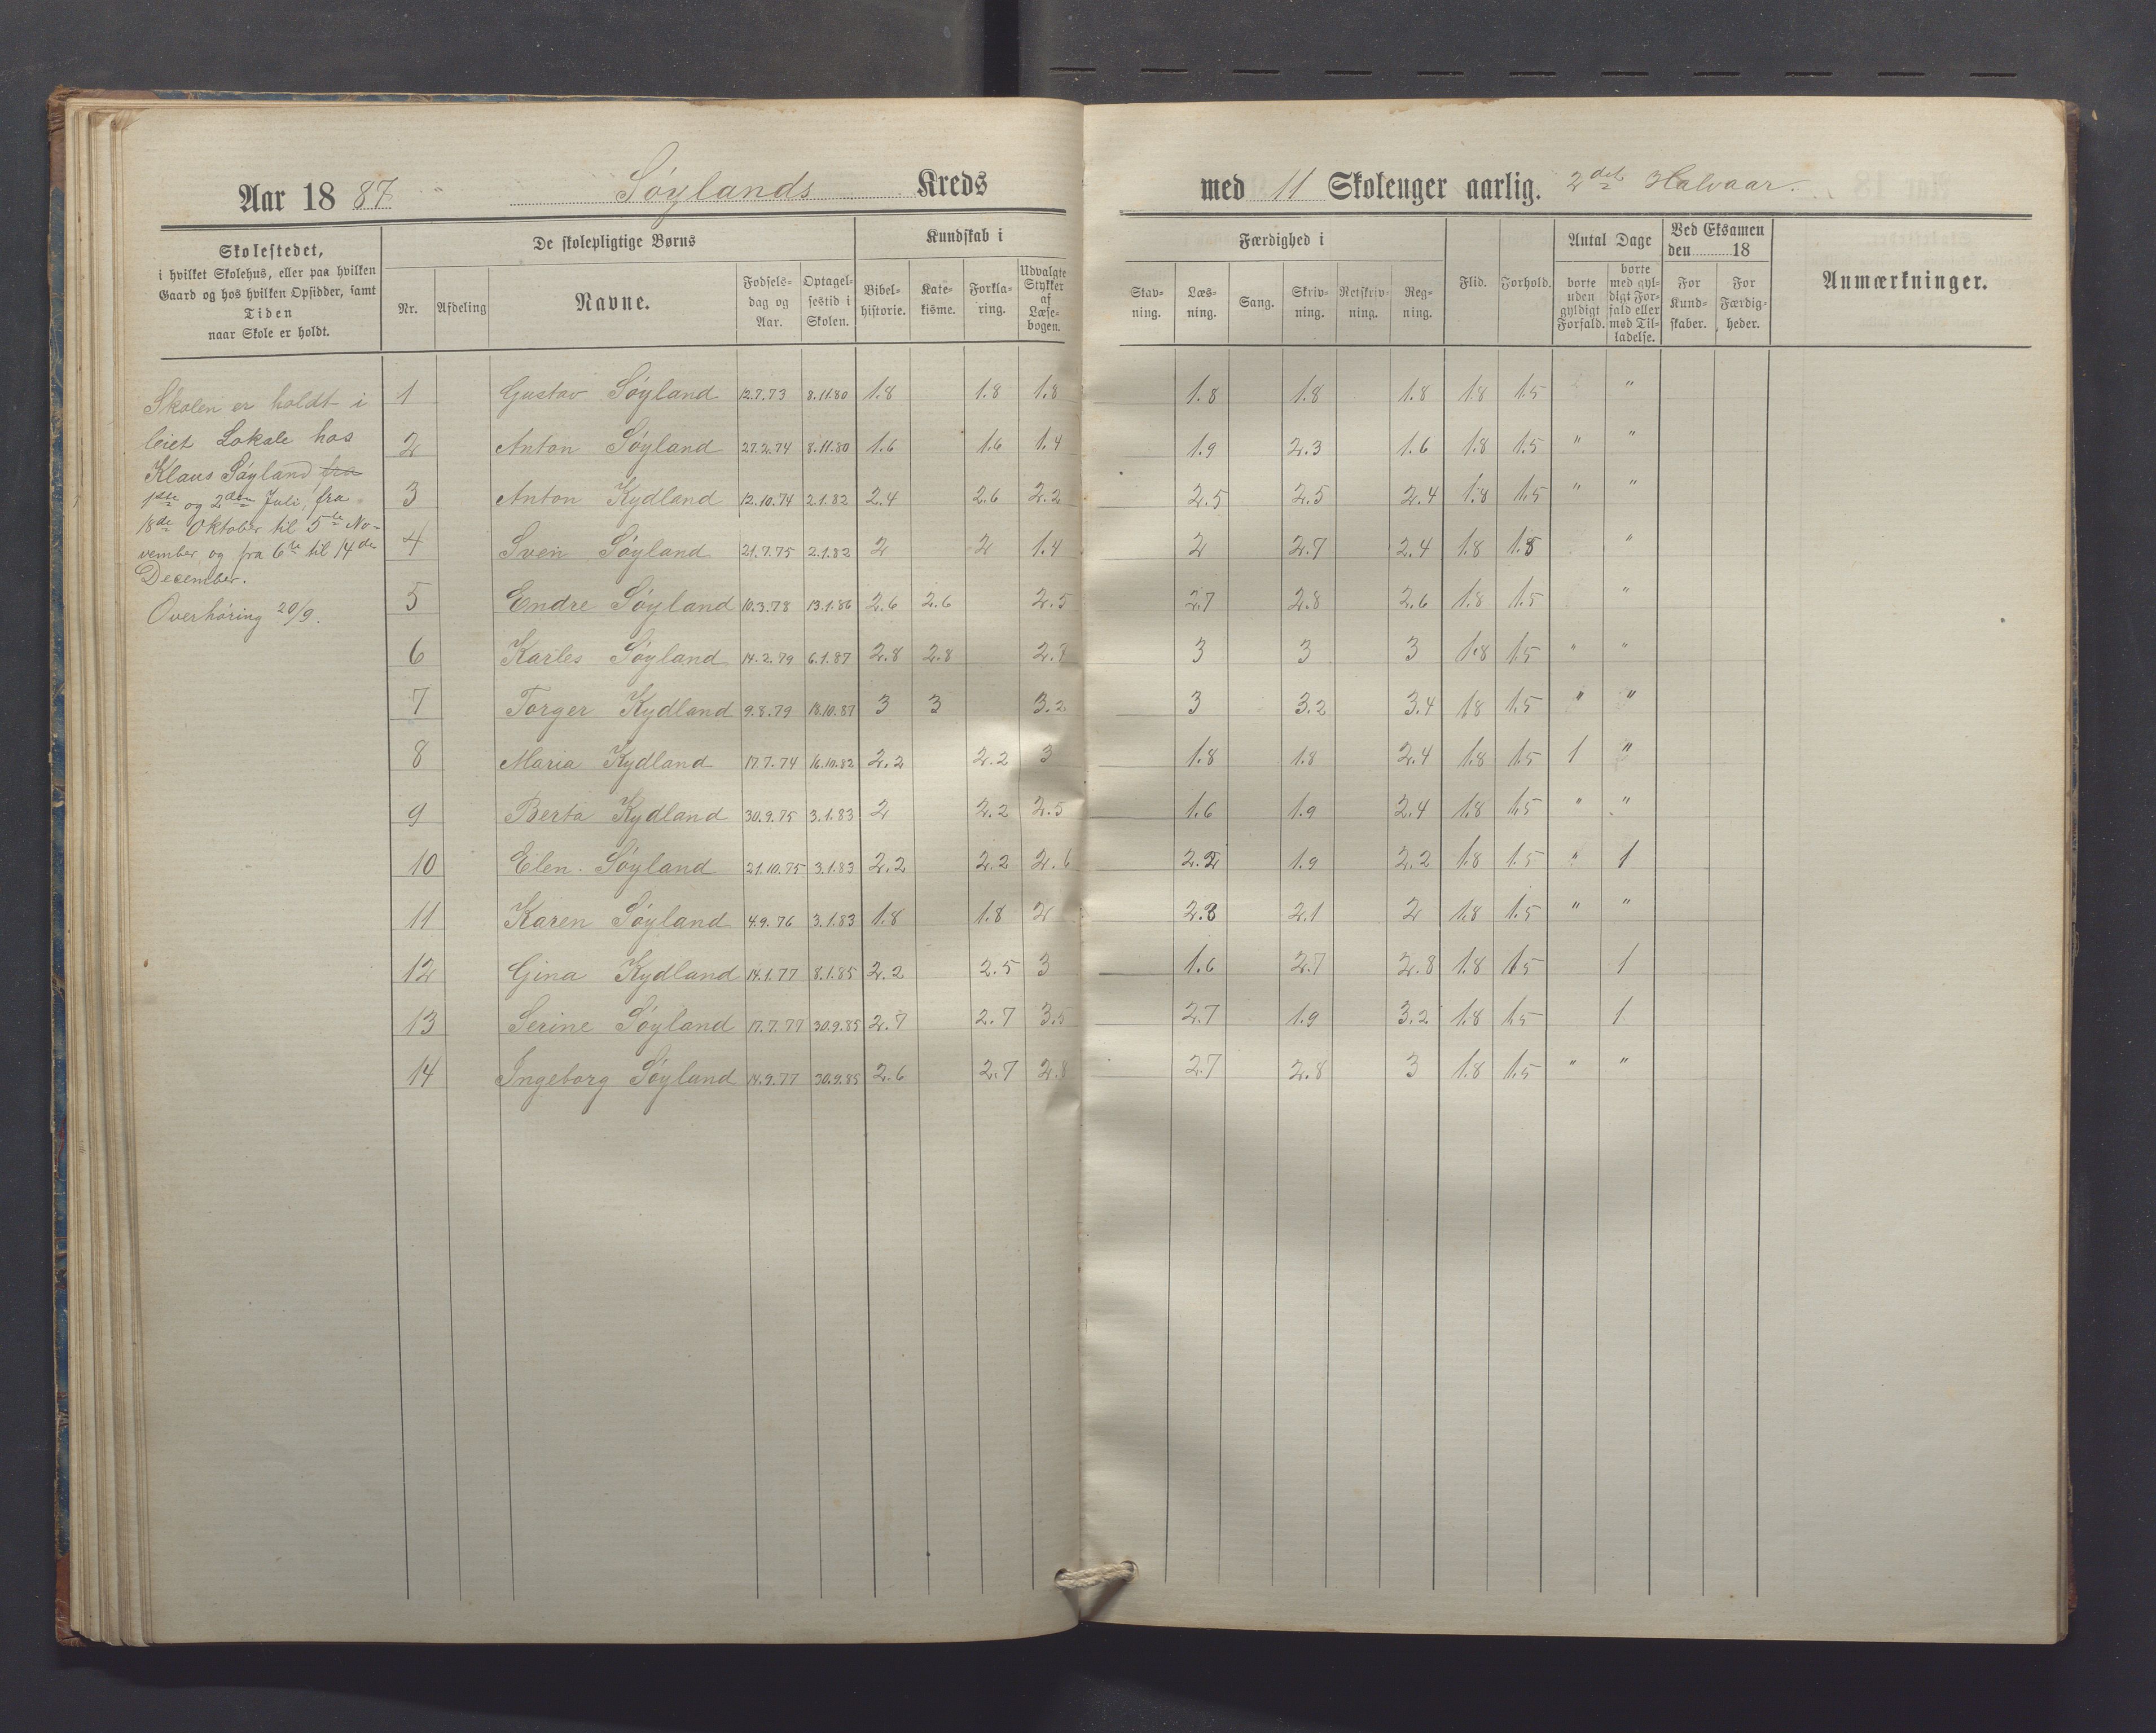 Aar 1887. Søylands Kreds
Skolestedet,
i hvilket Skolehus, eller paa hvilken
Gaard og hos hvilken Opsidder, samt
Tiden
naar Skole er holdt.
De skolepligtige Børns
Nr.
Afdeling
Navne.
Fødsels-
dag og
Aar.
Optagel-
sestid i
Skolen.
Kundskab i
Bibel-
historie.
Kate-
kisme.
Forkla-
ring.
Udvalgte
Stykker
af
Læse-
bogen.
Skolen er holdt i
leiet Lokale hos
Klaus Søyland, fra
1ste og 2den Juli, fra
18de Oktober til 5te No-
vember og fra 6te til 14de
December.
Overhøring 20/9.
1 Gustav Søyland 12.7.73 8.11.80 1.8 1.8 1.8
2 Anton Søyland 27.2.74 8.11.80 1.6 1.6 1.4
3 Anton Kydland 12.10.74 2.1.82 2.4 2.6 2.2
4 Sven Søyland 21.7.75 2.1.82 2 2 1.4
5 Endre Søyland 10.3.78 13.1.86 2.6 2.6 2.5
6 Karles Søyland 14.2.79 6.1.87 2.8 2.8 2.8
7 Torger Kydland 9.8.79 18.10.87 3 3 3.2
8 Maria Kydland 17.7.74 16.10.82 2.2 2.2 3
9 Berta Kydland 30.9.75 3.1.83 2 2.2 2.5
10 Elen Søyland 21.10.75 3.1.83 2.2 2.2 2.6
11 Karen Søyland 4.9.76 3.1.83 1.8 1.8 2
12 Gina Kydland 14.1.77 8.1.85 2.2 2.5 3
13 Serine Søyland 17.7.77 30.9.85 2.7 2.7 3.5
14 Ingeborg Søyland 14.9.77 30.9.85 2.6 2.7 2.8
med 11 Skoleuger aarlig. 2det Halvaar.
Færdighed i
Stav-
ning.
Læs-
ning.
Sang.
Skriv-
ning.
Retskriv-
ning.
Reg-
ning.
Flid.
Forhold.
Antal Dage
borte
uden
gyldigt
Forfald.
borte
med gyl-
digt For-
fald eller
med Til-
ladelse.
Ved Eksamen
den 18
For
Kund-
skaber.
For
Færdig-
heder.
Anmærkninger.
1.8 1.8 1.8 1.8 1.5 "
1.9 2.3 1.6 1.8 1.5 " "
2.5 2.5 2.4 1.8 1.5 " "
2 2.7 2.4 1.8 1.5 "
2.7 2.8 2.6 1.8 1.5 "
3 3 3 1.8 1.5 " "
3 3.2 3.4 1.8 1.5 " "
1.8 1.8 2.4 1.8 1.5 1 "
1.6 1.9 2.4 1.8 1.5 " "
2.2 1.9 2.2 1.8 1.5 " 1
2.3 2.1 2 1.8 1.5 " "
1.6 2.7 2.8 1.8 1.5 1
2.7 1.9 3.2 1.8 1.5 1
2.7 2.8 3 1.8 1.5 " "